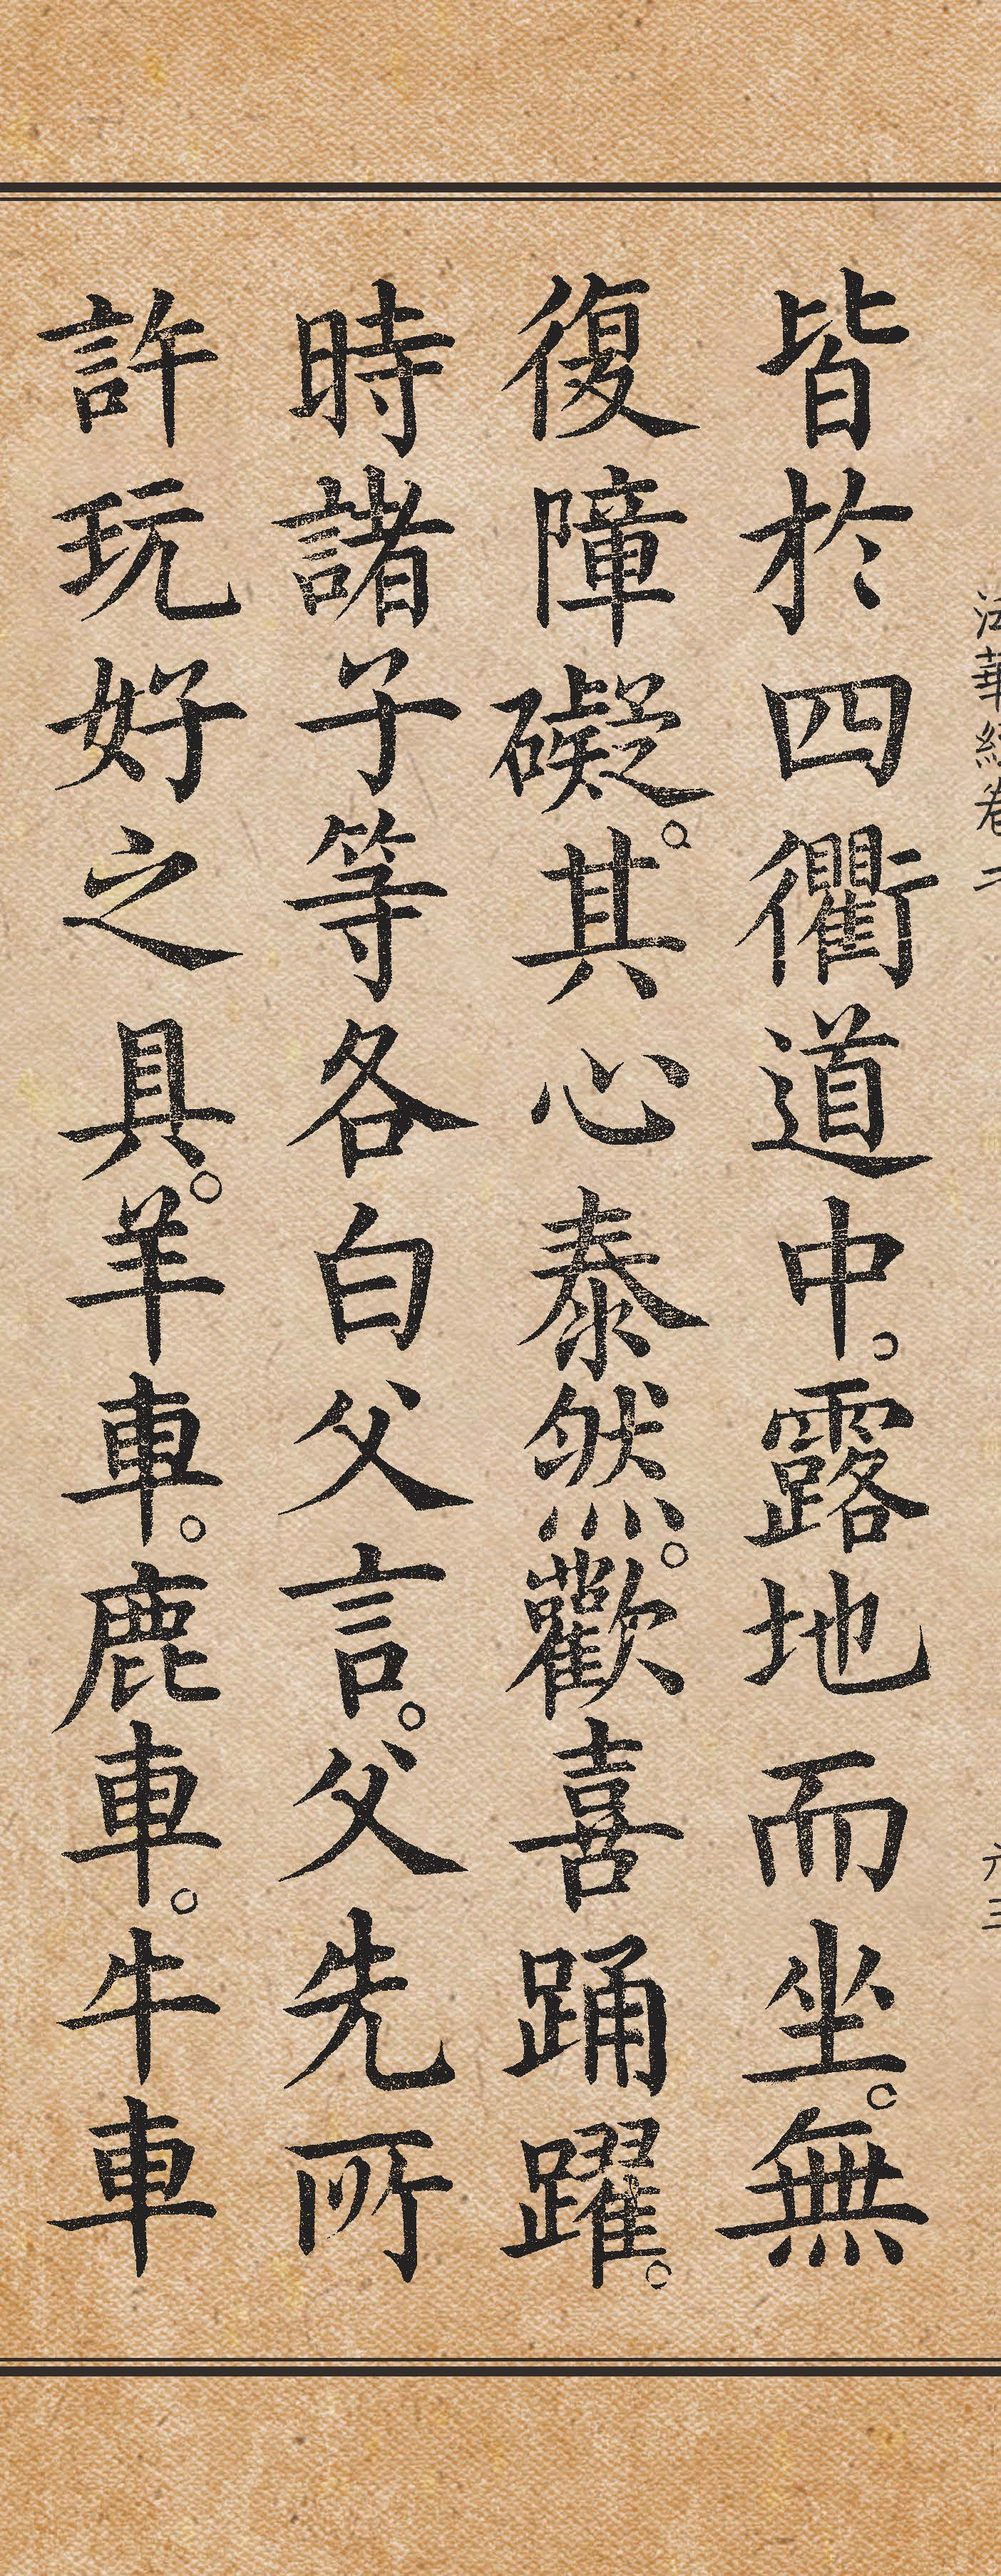 法華經卷二
六三
皆於四衢道中。露地而坐。無
復障礙。其心泰然。歡喜踊躍。
時諸子等各白父言。父先所
許玩好之具。羊車。鹿車。牛車